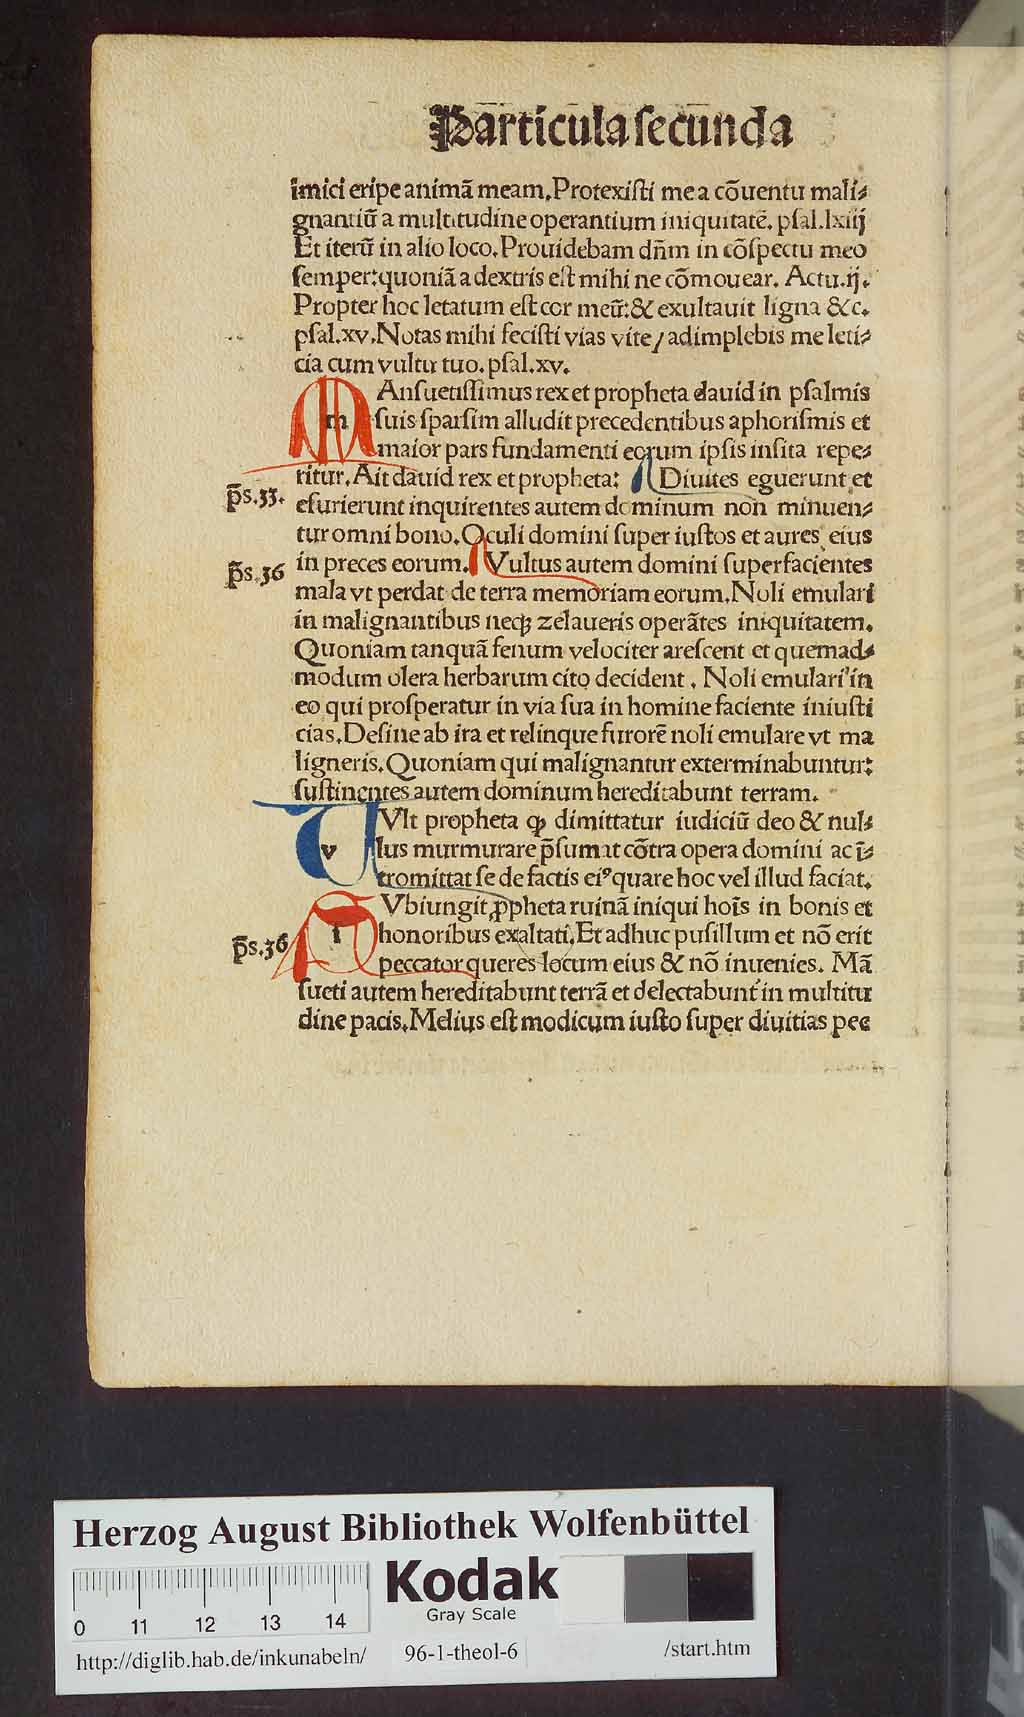 Particula secunda
imici eripe animā meam. Protexisti me a cōuentu mali⸗
gnantiū a multitudine operantium iniquitatē. psal. lxiij
Et iterū in alio loco. Prouidebam dn̄m in cōspectu meo
semper: quoniā a dextris est mihi ne cōmouear. Actu. ij.
Propter hoc letatum est cor meū: & exultauit ligna &c.
psal. xv. Notas mihi fecisti vias vite / adimplebis me leti⸗
cia cum vultu tuo. psal. xv.
m Ansuetissimus rex et propheta dauid in psalmis
suis sparsim alludit precedentibus aphorismis et
maior pars fundamenti eorum ipsis insita repe⸗
ritur. Ait dauid rex et propheta: Diuites eguerunt et
p̄s. 33.
esurierunt inquirentes autem dominum non minuen⸗
tur omni bono. Oculi domini super iustos et aures eius
p̄s. 36
in preces eorum. Vultus autem domini super facientes
mala vt perdat de terra memoriam eorum. Noli emulari
in malignantibus neqȝ zelaueris operātes iniquitatem.
Quoniam tanquā fenum velociter arescent et quemad⸗
modum olera herbarum cito decident. Noli emulari in
eo qui prosperatur in via sua in homine faciente iniusti
cias. Desine ab ira et relinque furorē noli emulare vt ma
ligneris. Quoniam qui malignantur exterminabuntur:
sustinentes autem dominum hereditabunt terram.
v Vlt propheta ꝙ dimittatur iudiciū deo & nul⸗
lus murmurare p̄sumat cōtra opera domini ac ī⸗
tromittat se de factis eiꝰ quare hoc vel illud faciat.
Vbiungit ꝓpheta ruinā iniqui hoīs in bonis et
p̄s. 36
honoribus exaltati. Et adhuc pusillum et nō erit
peccator queres locum eius & nō inuenies. Mā
sueti autem hereditabunt terrā et delectabunt' in multitu
dine pacis. Melius est modicum iusto super diuitias pec
Herzog August Bibliothek Wolfenbüttel
Kodak
Gray Scale
0 11 12 13 14
http://diglib.hab.de/inkunabeln/ 96-1-theol-6 /start.htm